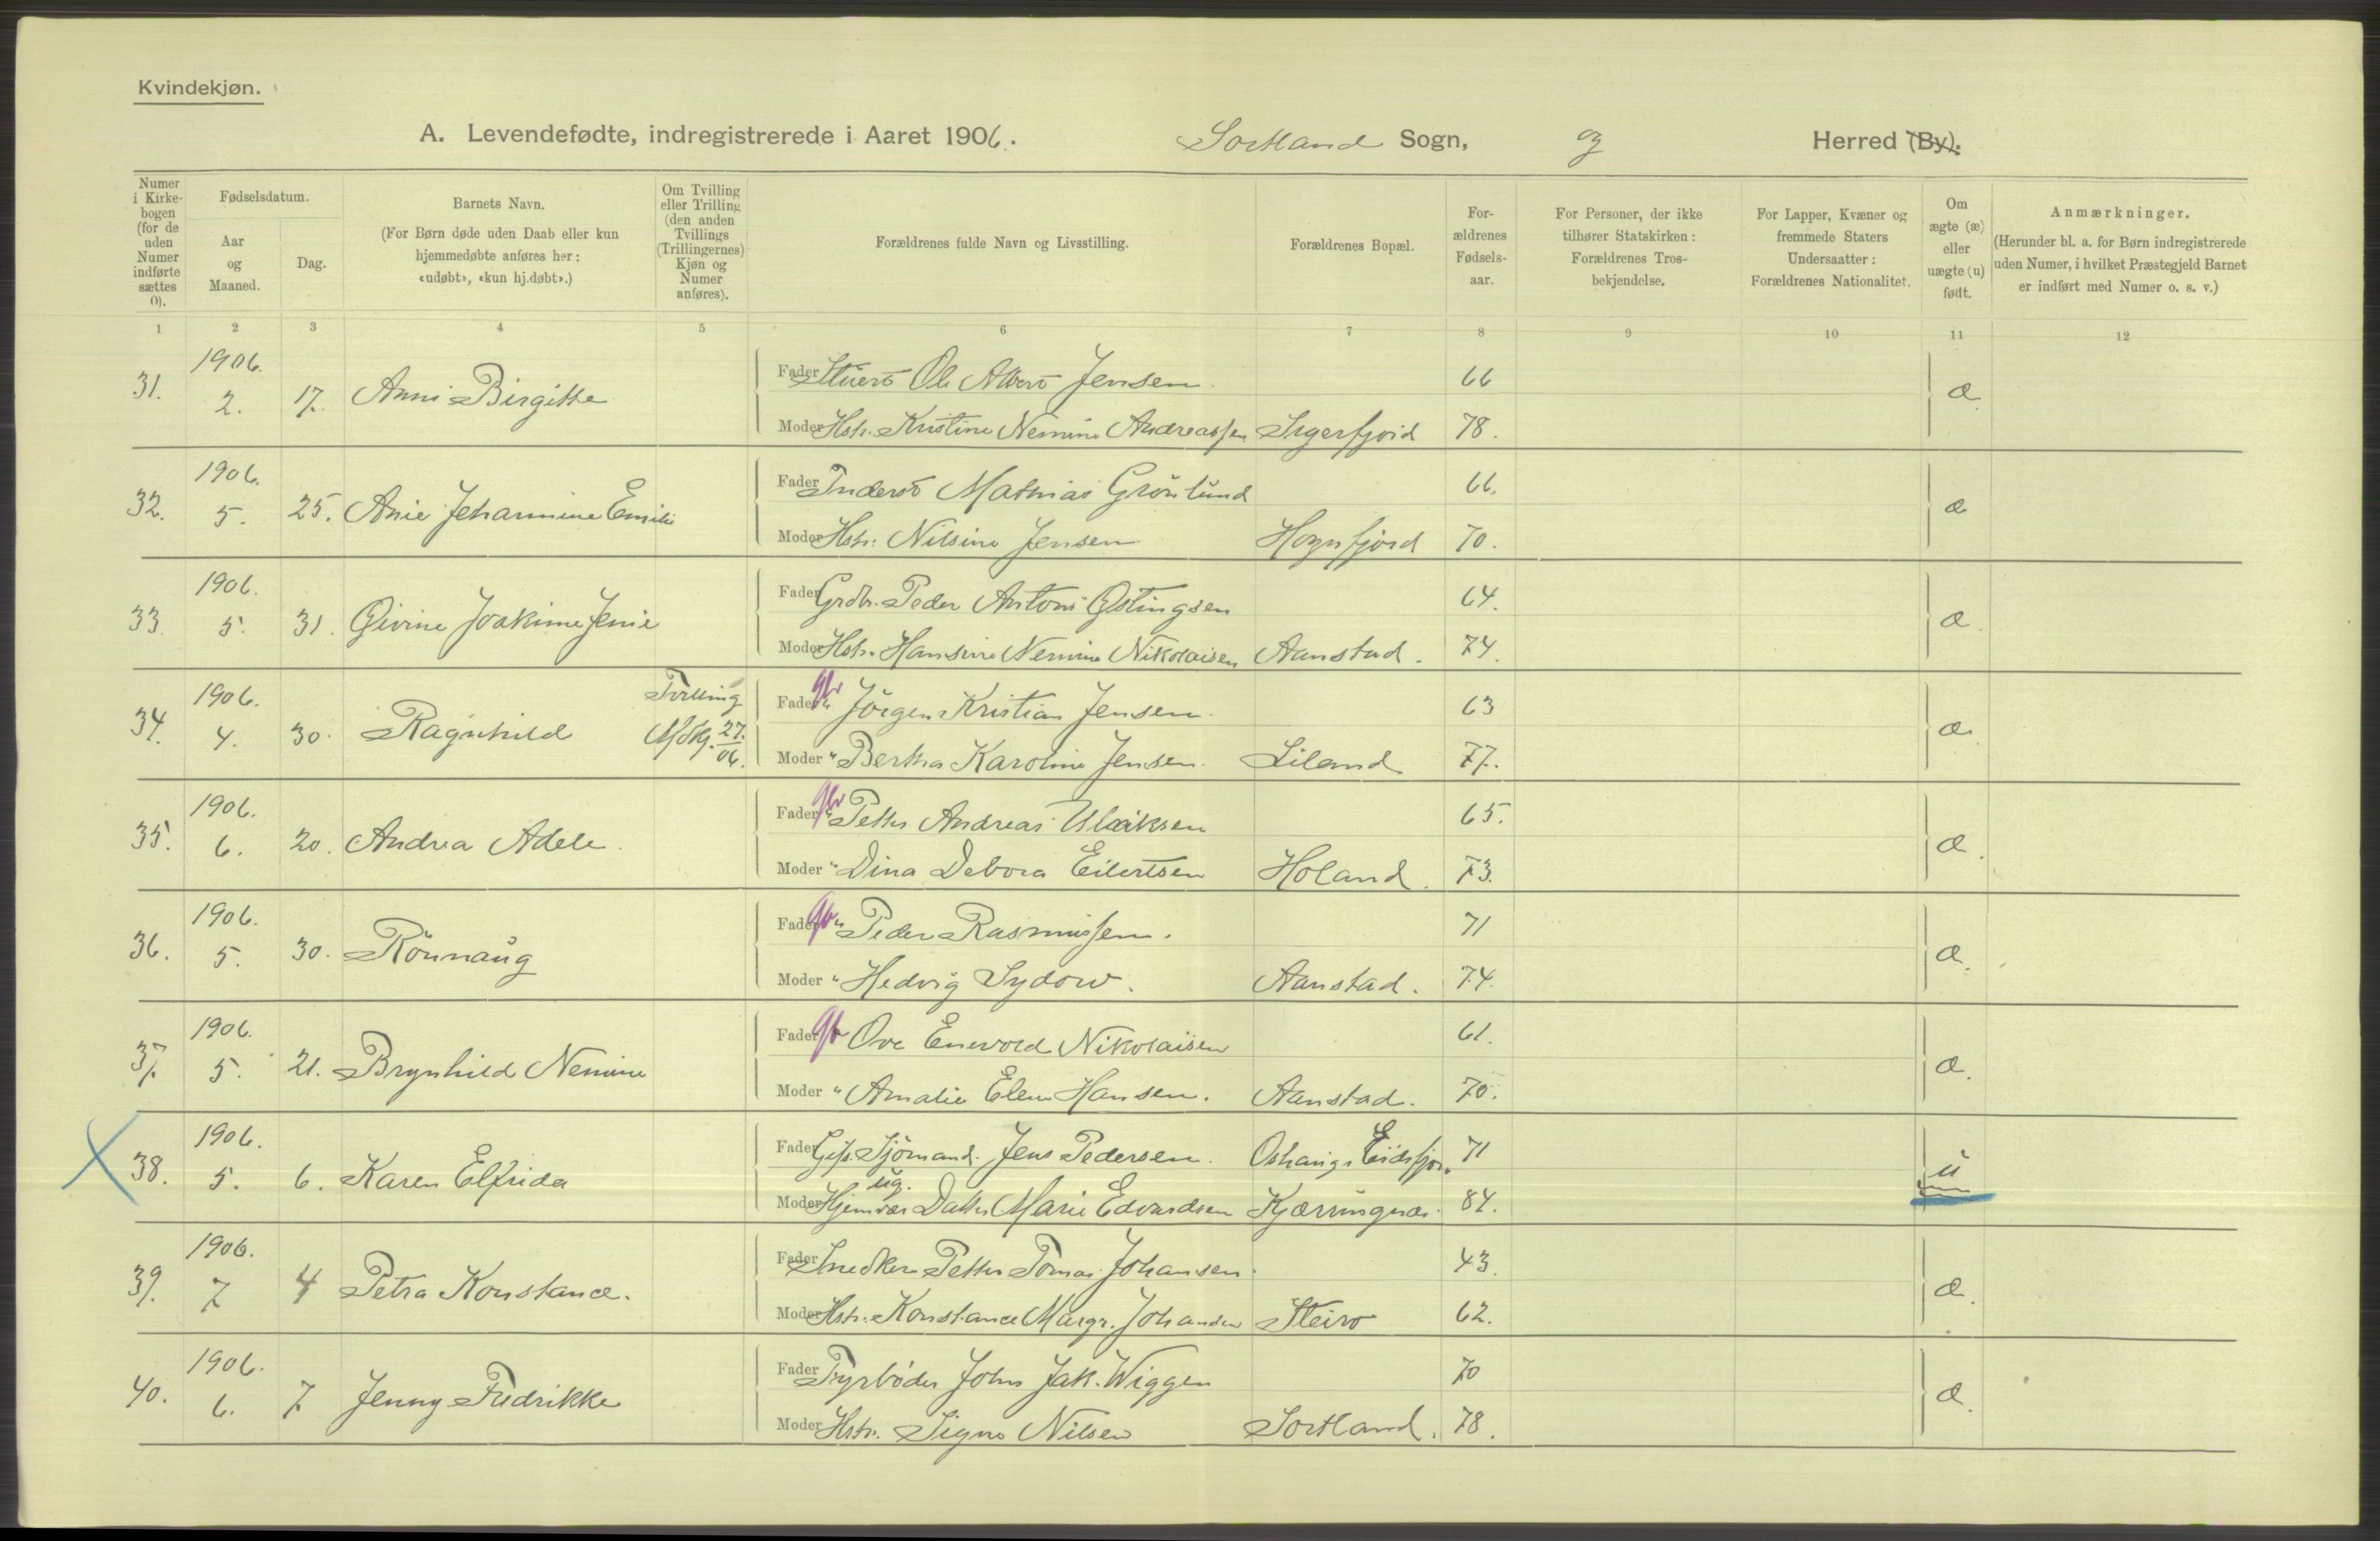 Kvindekjøn.
A. Levendefødte, indregistrerede i Aaret 1906. Sortland Sogn, og Herred (By).
Numer i Kirkebogen (for de uden Numer indførte sættes 0).
Fødselsdatum.
Aar og Maaned.
Dag.
Barnets Navn.
(For Børn døde uden Daab eller kun hjemmedøbte anføres her: «udøbt», «kun hj.døbt».)
Om Tvilling eller Trilling (den anden Tvillings (Trillingernes) Kjøn og Numer anføres).
Forældrenes fulde Navn og Livsstilling.
Forældrenes Bopæl.
Forældrenes Fødselsaar.
For Personer, der ikke tilhører Statskirken: Forældrenes Trosbekjendelse.
For Lapper, Kvæner og fremmede Staters Undersaatter: Forældrenes Nationalitet.
Om ægte (æ) eller uægte (u) født.
Anmærkninger.
(Herunder bl. a. for Børn indregistrerede uden Numer, i hvilket Præstegjeld Barnet er indført med Numer o. s. v.)
1 2 3 4 5 6 7 8 9 10 11 12
1906.
31. 2. 17. Anni Birgitte
Fader Ole Albert Jensen. 66
Moder Hstr. Kristine Nemine Andreassen Sigerfjord 78.
æ.
1906.
32. 5. 25. Anie Jeharmine Emilie
Fader Inderst Mathias Grönlund 66.
Moder Hstr. Nilsine Jensen Hognfjord 70.
æ
1906.
33. 5. 31. Givine Joakime Jenie
Fader Grdbr. Peder Antoni Østingsen 64.
Moder Hstr. Hansine Nemine Nikolaisen Aanstad. 74.
æ.
1906.
34. 4. 30. Ragnhild Tvilling M.Kj. 27./06.
Fader gbr " Jörgen Kristian Jensen. 63
Moder " Bertha Karoline Jensen. Liland 77.
æ.
1906.
35. 6. 20. Andrea Adele.
Fader gbr " Petter Andreas Ulriksen 65.
Moder " Dina Debora Eilertsen Holand. 73.
æ.
1906.
36. 5. 30. Rönnaug
Fader gbr " Peder Rasmussen. 71
Moder " Hedvig Sydow. Aanstad. 74.
æ.
1906.
37. 5. 21. Brynhild Nemine
Fader gbr Ove Enevold Nikolaisen 61.
Moder " Amalie Elene Hansen. Aanstad. 70.
æ.
1906.
38. 5. 6. Karen Elfrida
Fader Gift Sjömand. Jens Pedersen. Eidsfjor. 71
ug.
Moder Hjemvær Datter Marie Edvardsen Kjærringnæs. 84.
u
1906.
39. 7 4 Petra Konstance.
Fader Snedker Petter Tomas Johansen. 43.
Moder Hstr. Konstance Margr. Johansen Steiro 62.
æ.
1906.
40. 6. 7. Jenny Fredrikke
Fader Fyrböder John Jak. Wiggen 70
Moder Hstr. Signe Nilsen Sortland. 78.
æ.